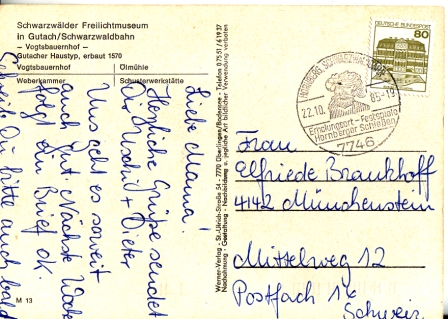 Schwarzwälder Freilichtmuseum
in Gutach/Schwarzwaldbahn
– Vogtsbauernhof –
Gutacher Haustyp, erbaut 1570
Vogtsbauernhof Ölmühle
Weberkammer Schusterwerkstätte
Liebe Mama!
Herzliche Grüße sendet
Dir Uschi + Dieter
Uns geht es soweit
auch gut. Nächste Woche
folgt ein Brief ok.
Schreibe Du bitte auch bald
M 13
Werner-Verlag - St.-Ulrich-Straße 54 - 7770 Überlingen/Bodensee - Telefon 07551/61937
Nachahmung - Gestaltung - Nachbildung u. jegliche Art bildlicher Verwendung verboten
DEUTSCHE BUNDESPOST
80
22.10. 85-19
Erholungsort - Festspiele
Hornberger Schießen
7746
Frau
Elfriede Braukhoff
4142 Münchenstein
Mittelweg 12
Postfach 16
Schweiz